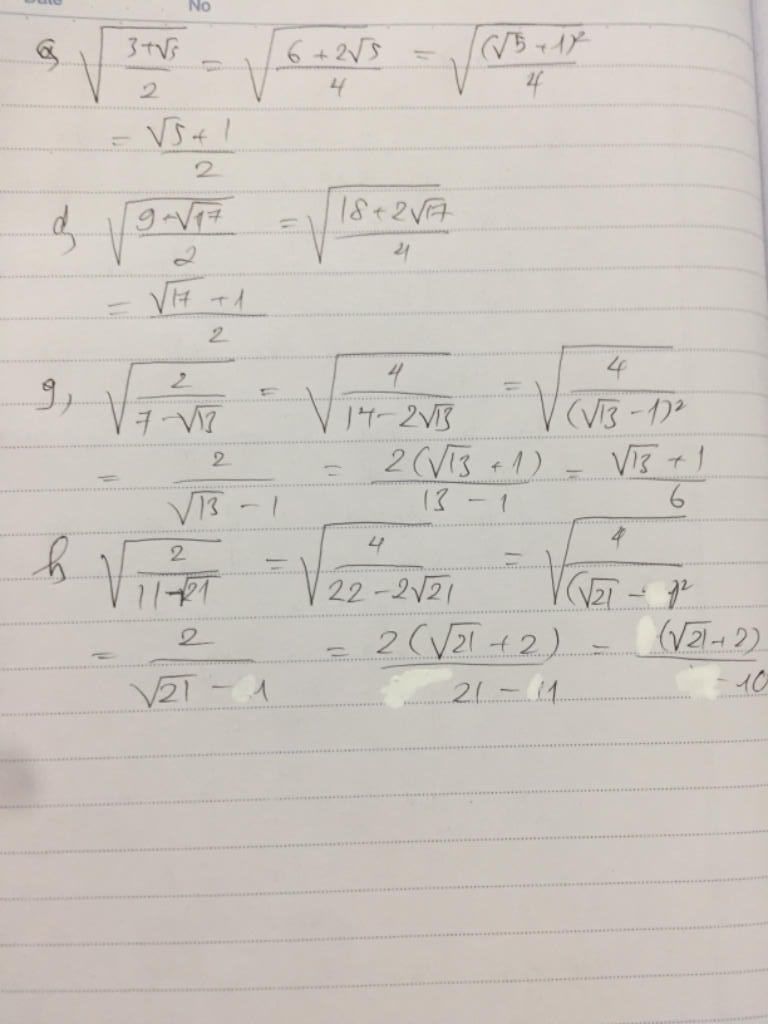 No
a, √((3+√5)/2) = √((6+2√5)/4) = √((√5+1)²/4)
= (√5+1)/2
d, √((9+√17)/2) = √((18+2√17)/4)
= (√17+1)/2
g, √(2/(7-√13)) = √(4/(14-2√13)) = √(4/(√13-1)²)
= 2/(√13-1) = 2(√13+1)/(13-1) = (√13+1)/6
h √(2/(11-√21)) = √(4/(22-2√21)) = √(4/(√21-1)²)
= 2/(√21-1) = 2(√21+2)/(21-11) = (√21+2)/-10